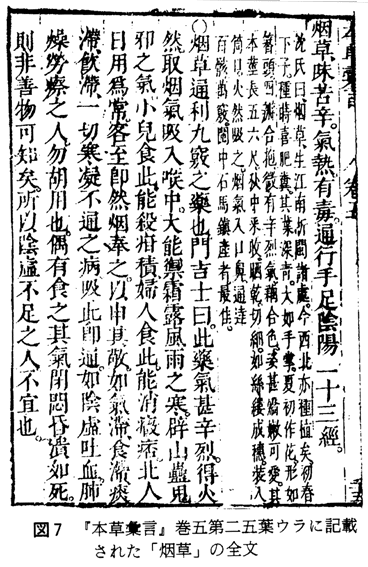 本草彙言 卷五
烟草。味苦辛。氣熱。有毒。通行手足陰陽一十三經。
沈氏曰烟草生江南浙閩諸處。今西北亦種植矣。初春
下子種。時喜肥糞。其葉深青。大如手掌。夏初作花。形如
簪頭。四瓣合抱。微有辛烈氣。藕合色。姿甚嬌嫩可愛。其
本葉長五六尺。秋中采收。晒乾切細。如絲縷成穗。裝入
筒口。火然吸之。烟氣入口鼻。通達
百骸萬竅。閩中石馬鎮產者最佳。
○烟草通利九竅之藥也。門吉士曰。此藥氣甚辛烈。得火
然取烟氣吸入喉中。大能禦霜露風雨之寒。辟山蠱鬼
邪之氣。小兒食此。能殺疳積。婦人食此。能消癥痞。北人
日用爲常。客至即然烟奉之。以申其敬。如氣滯。食滯。痰
滯。飲滯。一切寒凝不通之病。吸此即通。如陰虛吐血。肺
燥勞瘵之人。勿胡用也。偶有食之。其氣閉悶昏潰如死。
則非善物可知矣。所以陰虛不足之人。不宜也。
図7 『本草彙言』巻五第二五葉ウラに記載
された「烟草」の全文